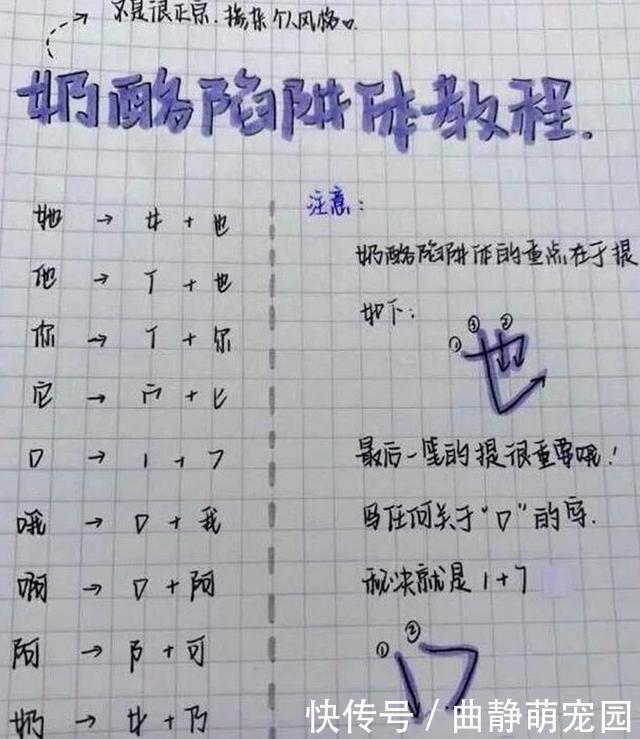 不是很正宗.掺杂个人风格。
奶酪陷阱体教程.
她 → 女 + 也
他 → 亻 + 也
你 → 亻 + 尔
它 → 宀 + 匕
口 → 1 + 7
哦 → 口 + 我
啊 → 口 + 阿
阿 → 阝 + 可
奶 → 女 + 乃
注意:
奶酪陷阱体的重点在于提
如下:
① ③ ②
也
最后一笔的提很重要哦!
写任何关于“口”的字.
秘诀就是 1 + 7
① ②
口
快传号 / 曲静萌宠园